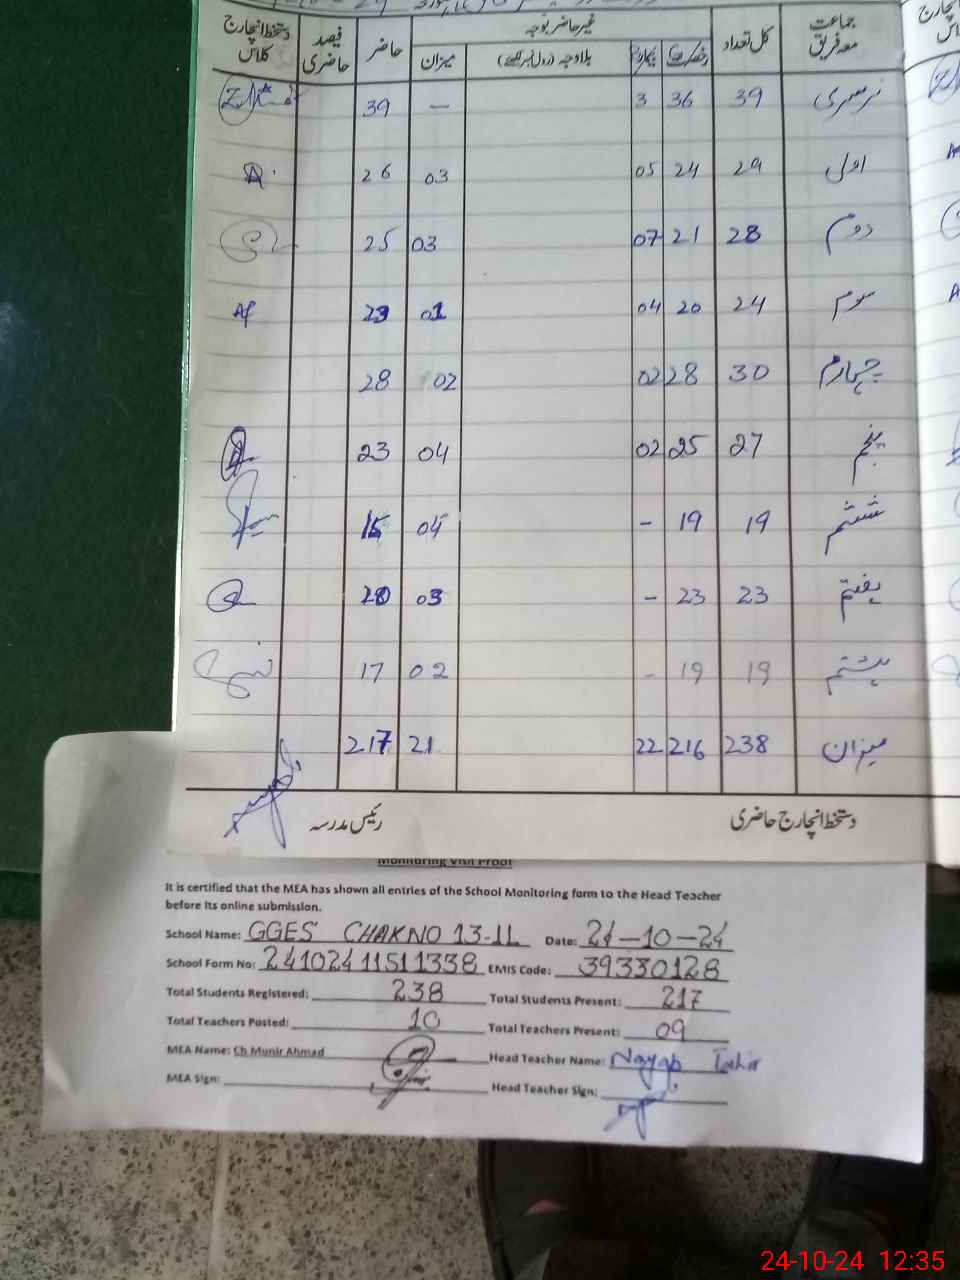 جماعت معہ فریق کل تعداد رخصت بیمار غیر حاضر بوجہ بلاوجہ (رول نمبر لکھئے) میزان حاضر فیصد حاضری دستخط انچارج کلاس
نرسری 39 36 3 — 39
اول 29 24 05 03 26
دوم 28 21 07 03 25
سوم 24 20 04 01 23
چہارم 30 28 02 02 28
پنجم 27 25 02 04 23
ششم 19 19 - 04 15
ہفتم 23 23 - 03 20
ہشتم 19 19 - 02 17
میزان 238 216 22 21 217
دستخط انچارج حاضری رئیس مدرسہ
Monitoring Visit Proof
It is certified that the MEA has shown all entries of the School Monitoring form to the Head Teacher
before its online submission.
School Name: GGES CHAK NO 13-1L Date: 24-10-24
School Form No: 24102411511338 EMIS Code: 39330128
Total Students Registered: 238 Total Students Present: 217
Total Teachers Posted: 10 Total Teachers Present: 09
MEA Name: Ch Munir Ahmad Head Teacher Name: Nayab Tahir
MEA Sign: Head Teacher Sign:
24-10-24 12:35